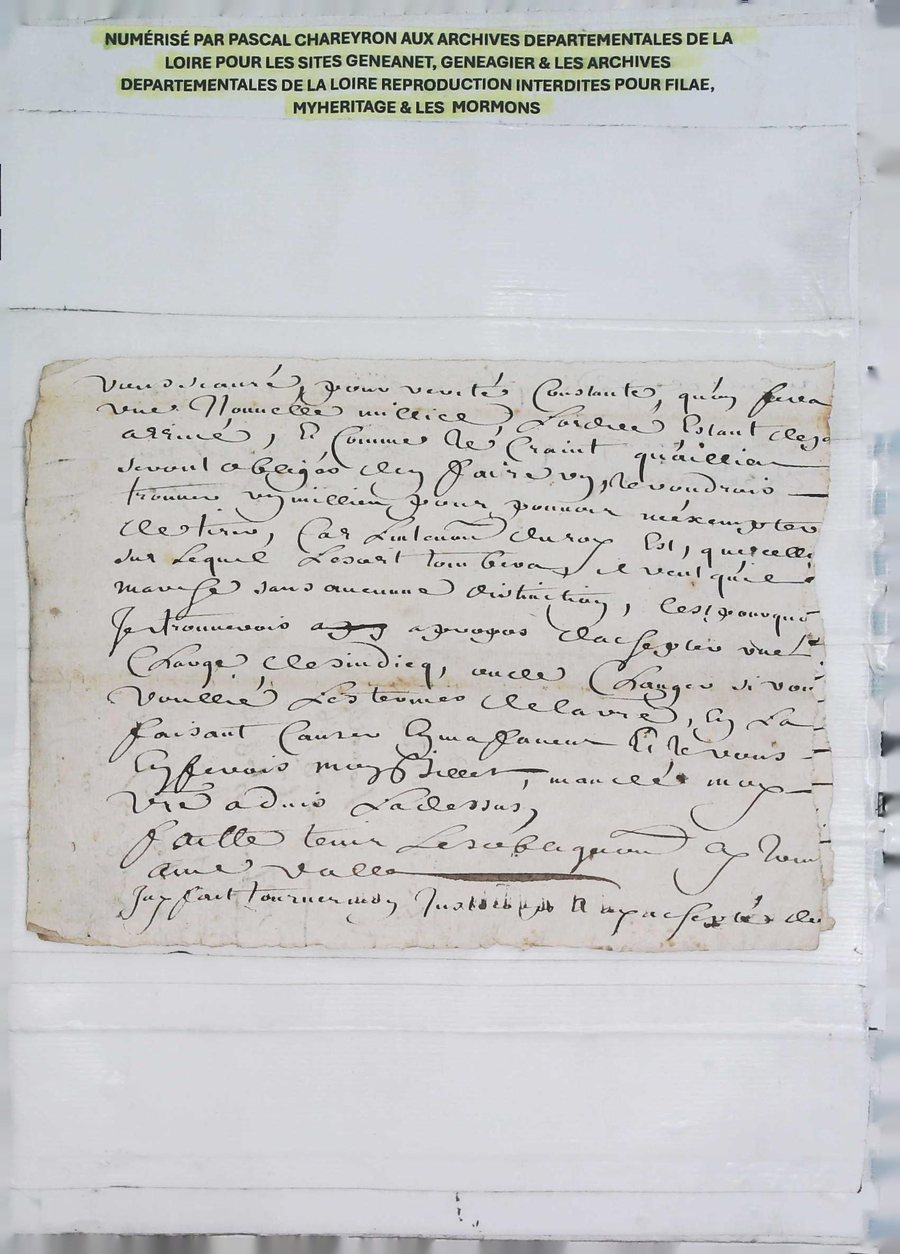 NUMÉRISÉ PAR PASCAL CHAREYRON AUX ARCHIVES DEPARTEMENTALES DE LA
LOIRE POUR LES SITES GENEANET, GENEAGIER & LES ARCHIVES
DEPARTEMENTALES DE LA LOIRE REPRODUCTION INTERDITES POUR FILAE,
MYHERITAGE & LES MORMONS
vous scauré, pour verité Constante, qu'on fera
une Nouuelle millice, Lordre Estant deja
arriué, Et Comme Je Craint
seront obligés den faire un, Je voudrois
trouuer un millien pour pouuoir méxempter
de tirer, Car Lintention du roy Est, que celluy
sur Lequel Lesort tombera, il veut quil
marche sans aucunne distinction, Cest pourquoy
Je trouuerois apropos dacsepter une
Charge desindicq, oude Changer si vous
voullié Lestermes delavie, En La
faisant Causer En ma faueur Et Je vous
En ferois mon Billet, mandé moy
vre aduis Ladessus,
faitte tenir ay